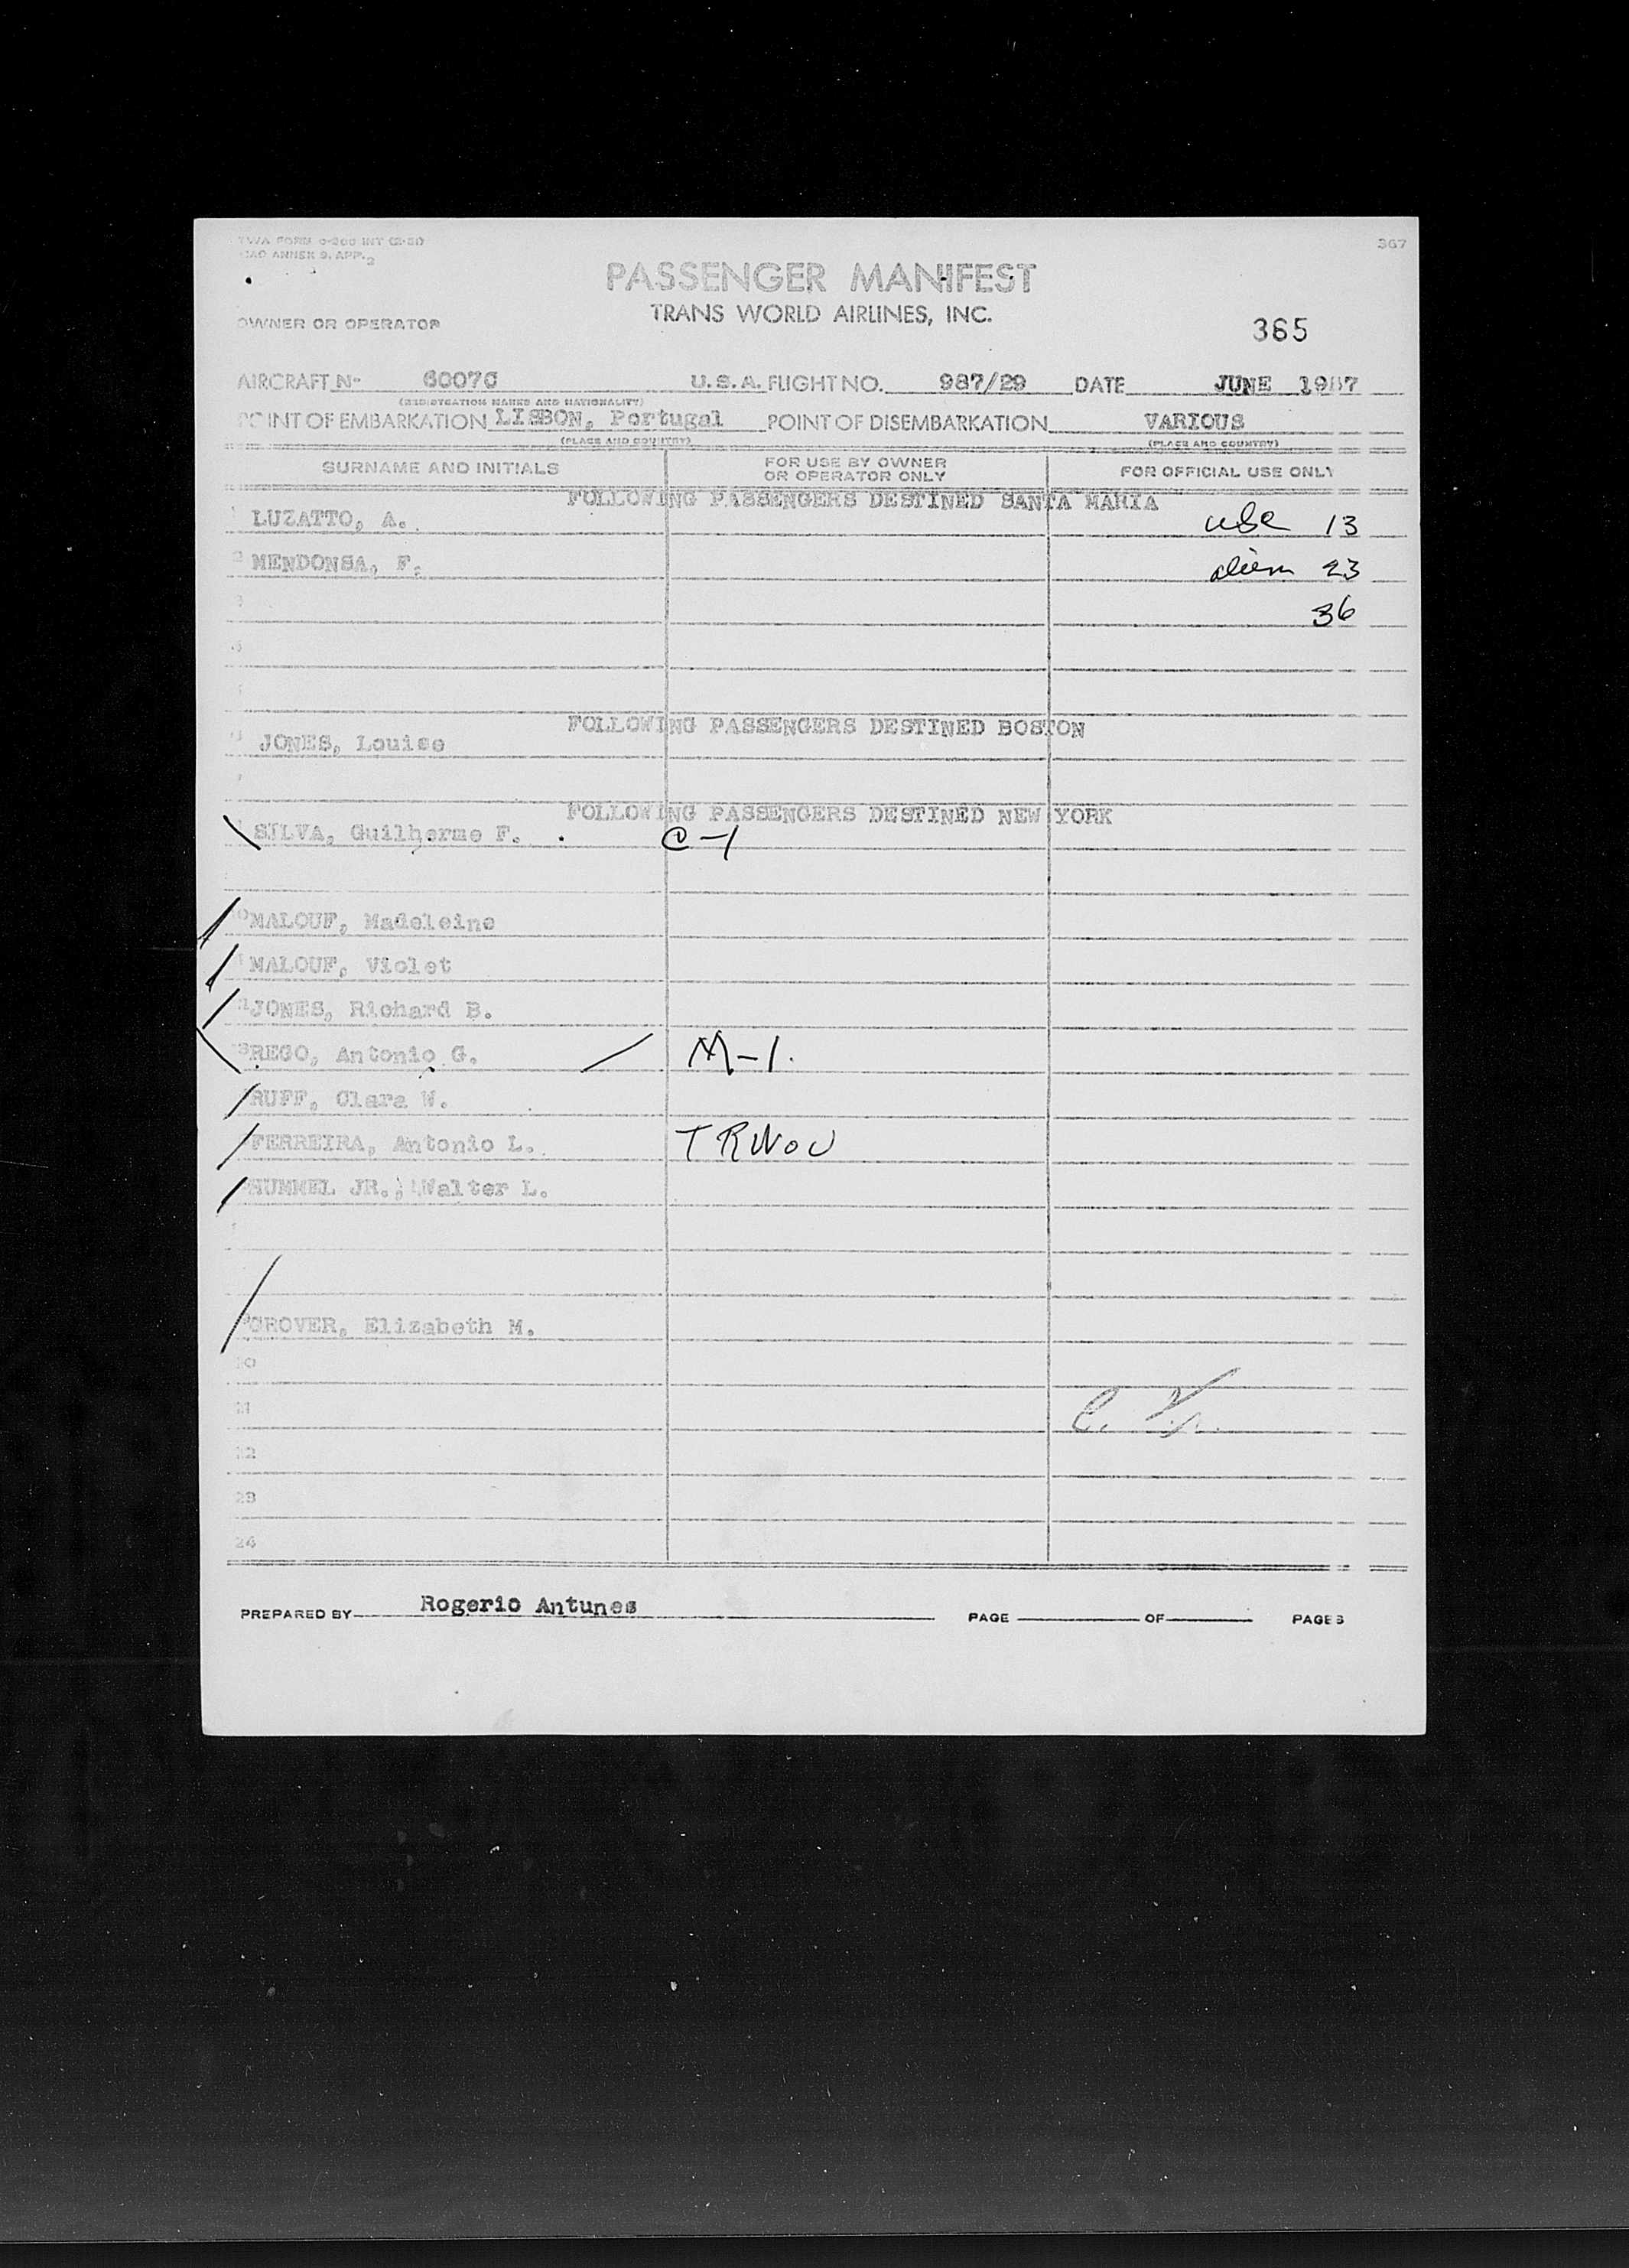 TWA FORM 0-200 INT (2-51)
ICAO ANNEX 9, APP. 2
367
PASSENGER MANIFEST
TRANS WORLD AIRLINES, INC.
OWNER OR OPERATOR
365
AIRCRAFT Nº 6007C U.S.A. FLIGHT NO. 987/29 DATE JUNE 1957
(REGISTRATION MARKS AND NATIONALITY)
POINT OF EMBARKATION LISBON, Portugal POINT OF DISEMBARKATION VARIOUS
(PLACE AND COUNTRY) (PLACE AND COUNTRY)
SURNAME AND INITIALS FOR USE BY OWNER OR OPERATOR ONLY FOR OFFICIAL USE ONLY
FOLLOWING PASSENGERS DESTINED SANTA MARIA
1 LUZATTO, A. usc 13
2 MENDONSA, F. alien 23
3 36
4
FOLLOWING PASSENGERS DESTINED BOSTON
JONES, Louise
FOLLOWING PASSENGERS DESTINED NEW YORK
SILVA, Guilherme F. C-1
MALOUF, Madeleine
MALOUF, Violet
JONES, Richard B.
REGO, Antonio G. M-1.
RUFF, Clara W.
FERREIRA, Antonio L. TRWOV
HUMMEL JR., Walter L.
GROVER, Elizabeth M.
20
21
22
23
24
PREPARED BY Rogerio Antunes PAGE OF PAGES